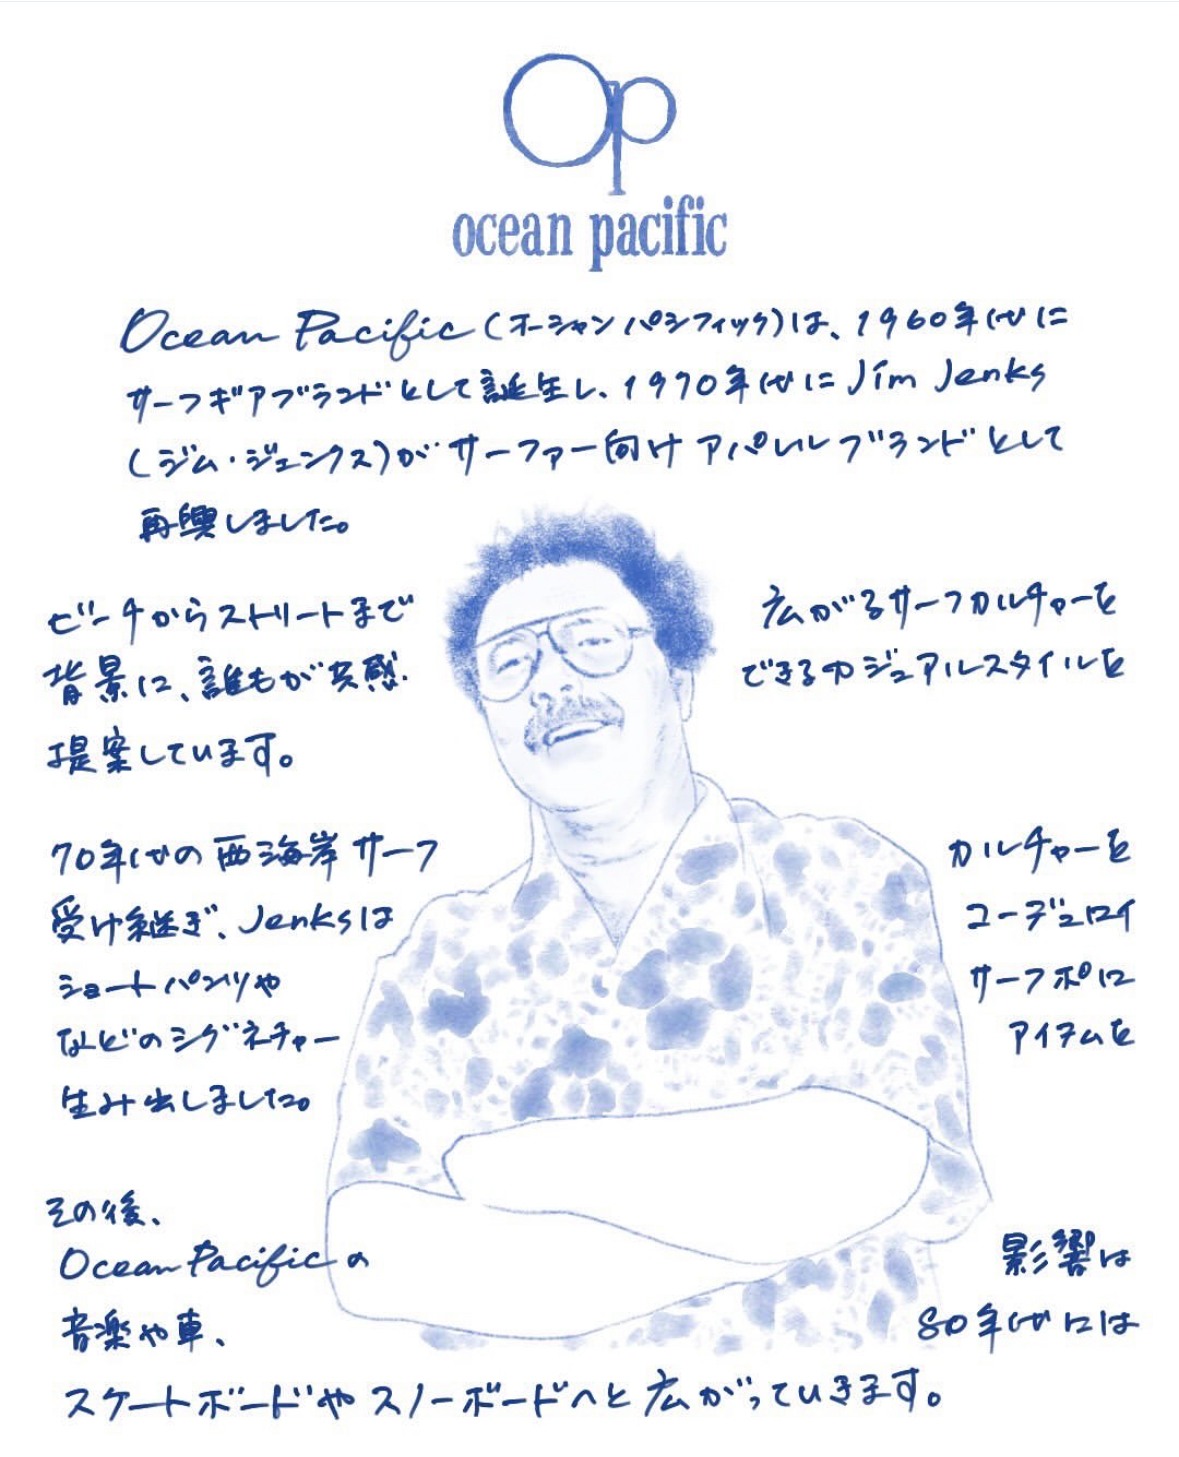 Op
ocean pacific
Ocean Pacific(オーシャンパシフィック)は、1960年代に
サーフギアブランドとして誕生し、1970年代にJim Jenks
(ジム・ジェンクス)がサーファー向けアパレルブランドとして
再興しました。
ビーチからストリートまで 広がるサーフカルチャーを
背景に、誰もが共感 できるカジュアルスタイルを
提案しています。
70年代の西海岸サーフ カルチャーを
受け継ぎ、Jenksは コーデュロイ
ショートパンツや サーフポロ
などのシグネチャー アイテムを
生み出しました。
その後、
Ocean Pacificの 影響は
音楽や車、 80年代には
スケートボードやスノーボードへと広がっていきます。